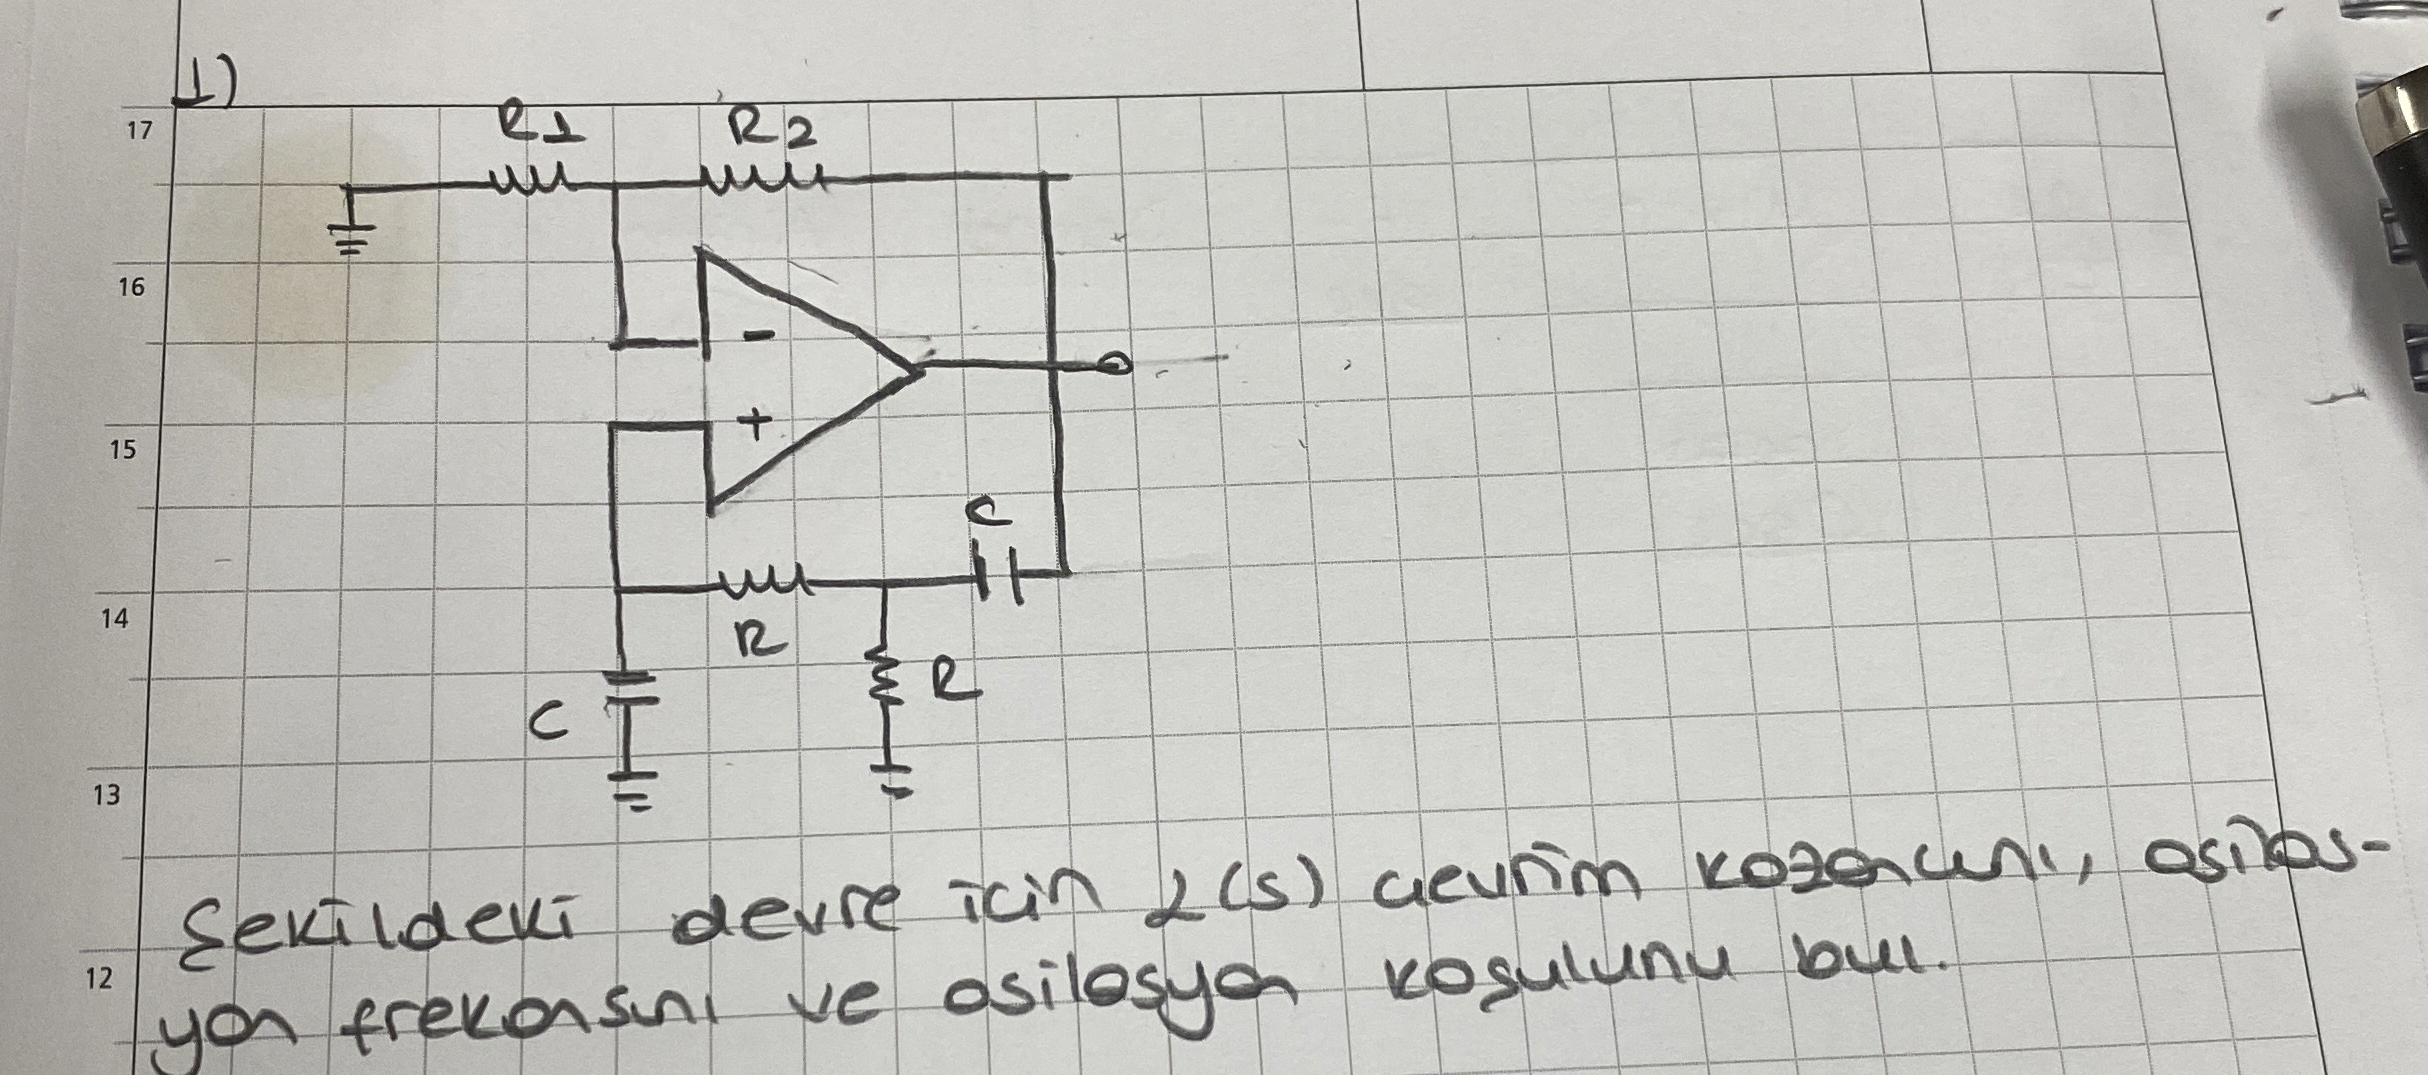 1)
17
R1 R2
16
-
15
+
C
14
R
R
C
13
Şekildeki devre için L(s) çevrim kazancını, osilas-
12
yon frekansını ve osilasyon koşulunu bul.